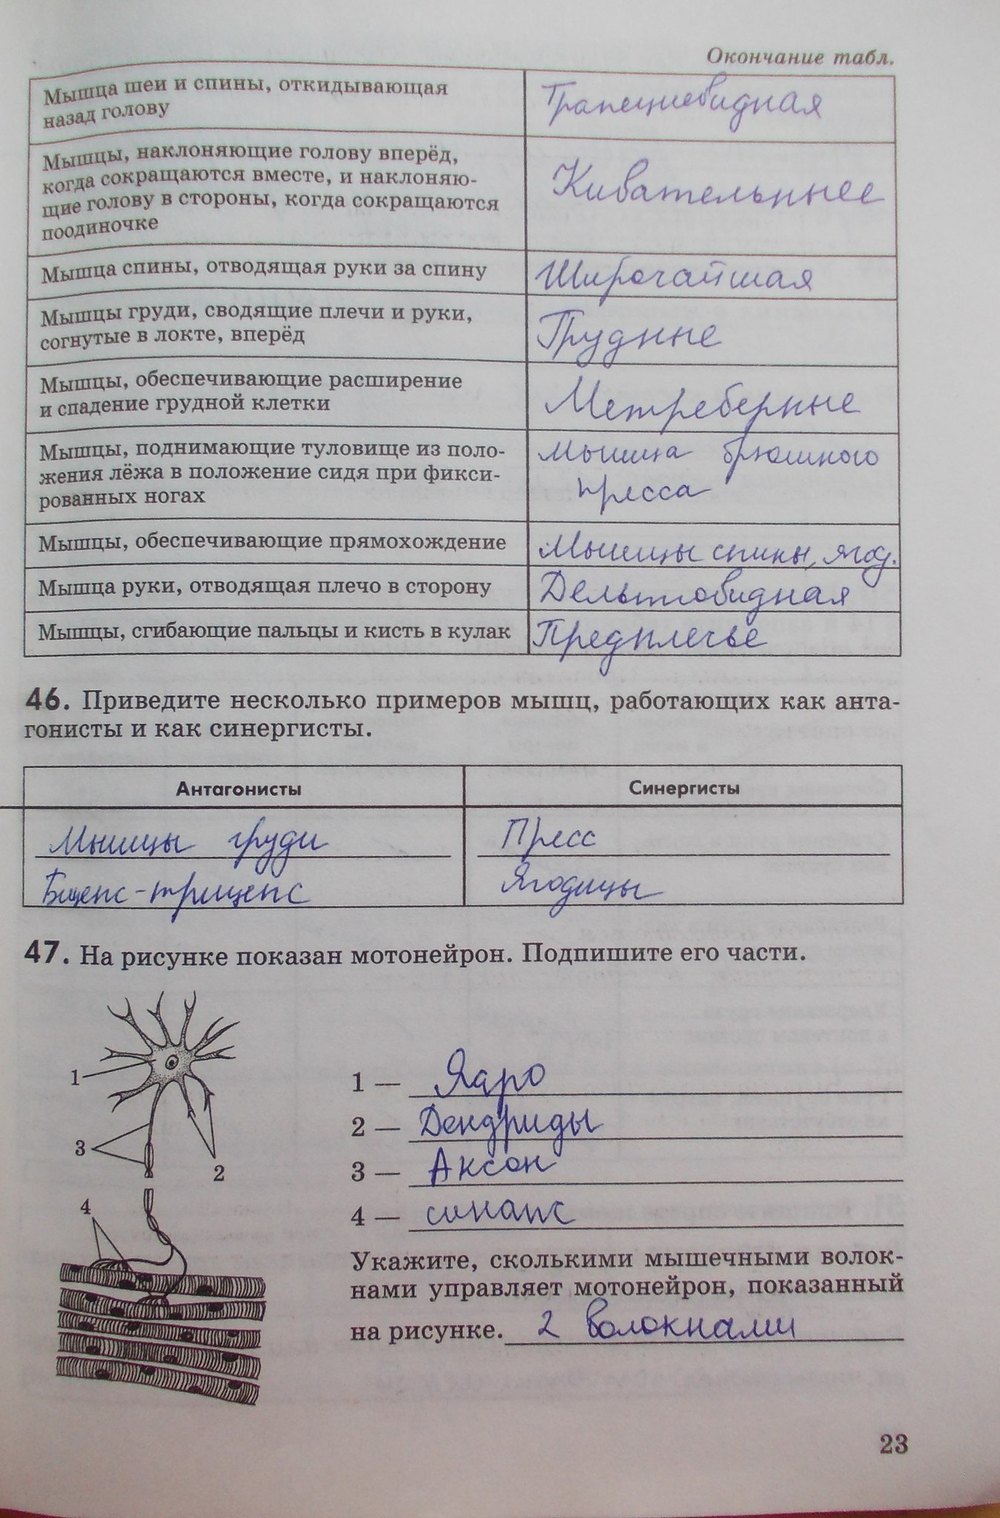 Окончание табл.
Мышца шеи и спины, откидывающая
назад голову
Трапециевидная
Мышцы, наклоняющие голову вперёд,
когда сокращаются вместе, и наклоняю-
щие голову в стороны, когда сокращаются
поодиночке
Кивательные
Мышца спины, отводящая руки за спину
Широчайшая
Мышцы груди, сводящие плечи и руки,
согнутые в локте, вперёд
Грудные
Мышцы, обеспечивающие расширение
и спадение грудной клетки
Метреберные
Мышцы, поднимающие туловище из поло-
жения лёжа в положение сидя при фикси-
рованных ногах
Мышца брюшного
пресса
Мышцы, обеспечивающие прямохождение
Мышцы спины, ягод.
Мышца руки, отводящая плечо в сторону
Дельтовидная
Мышцы, сгибающие пальцы и кисть в кулак
Предплечье
46. Приведите несколько примеров мышц, работающих как анта-
гонисты и как синергисты.
Антагонисты
Синергисты
Мышцы груди
Пресс
Бицепс-трицепс
Ягодицы
47. На рисунке показан мотонейрон. Подпишите его части.
1
3
2
4
1 — Ядро
2 — Дендриды
3 — Аксон
4 — синапс
Укажите, сколькими мышечными волок-
нами управляет мотонейрон, показанный
на рисунке. 2 волокнами
23